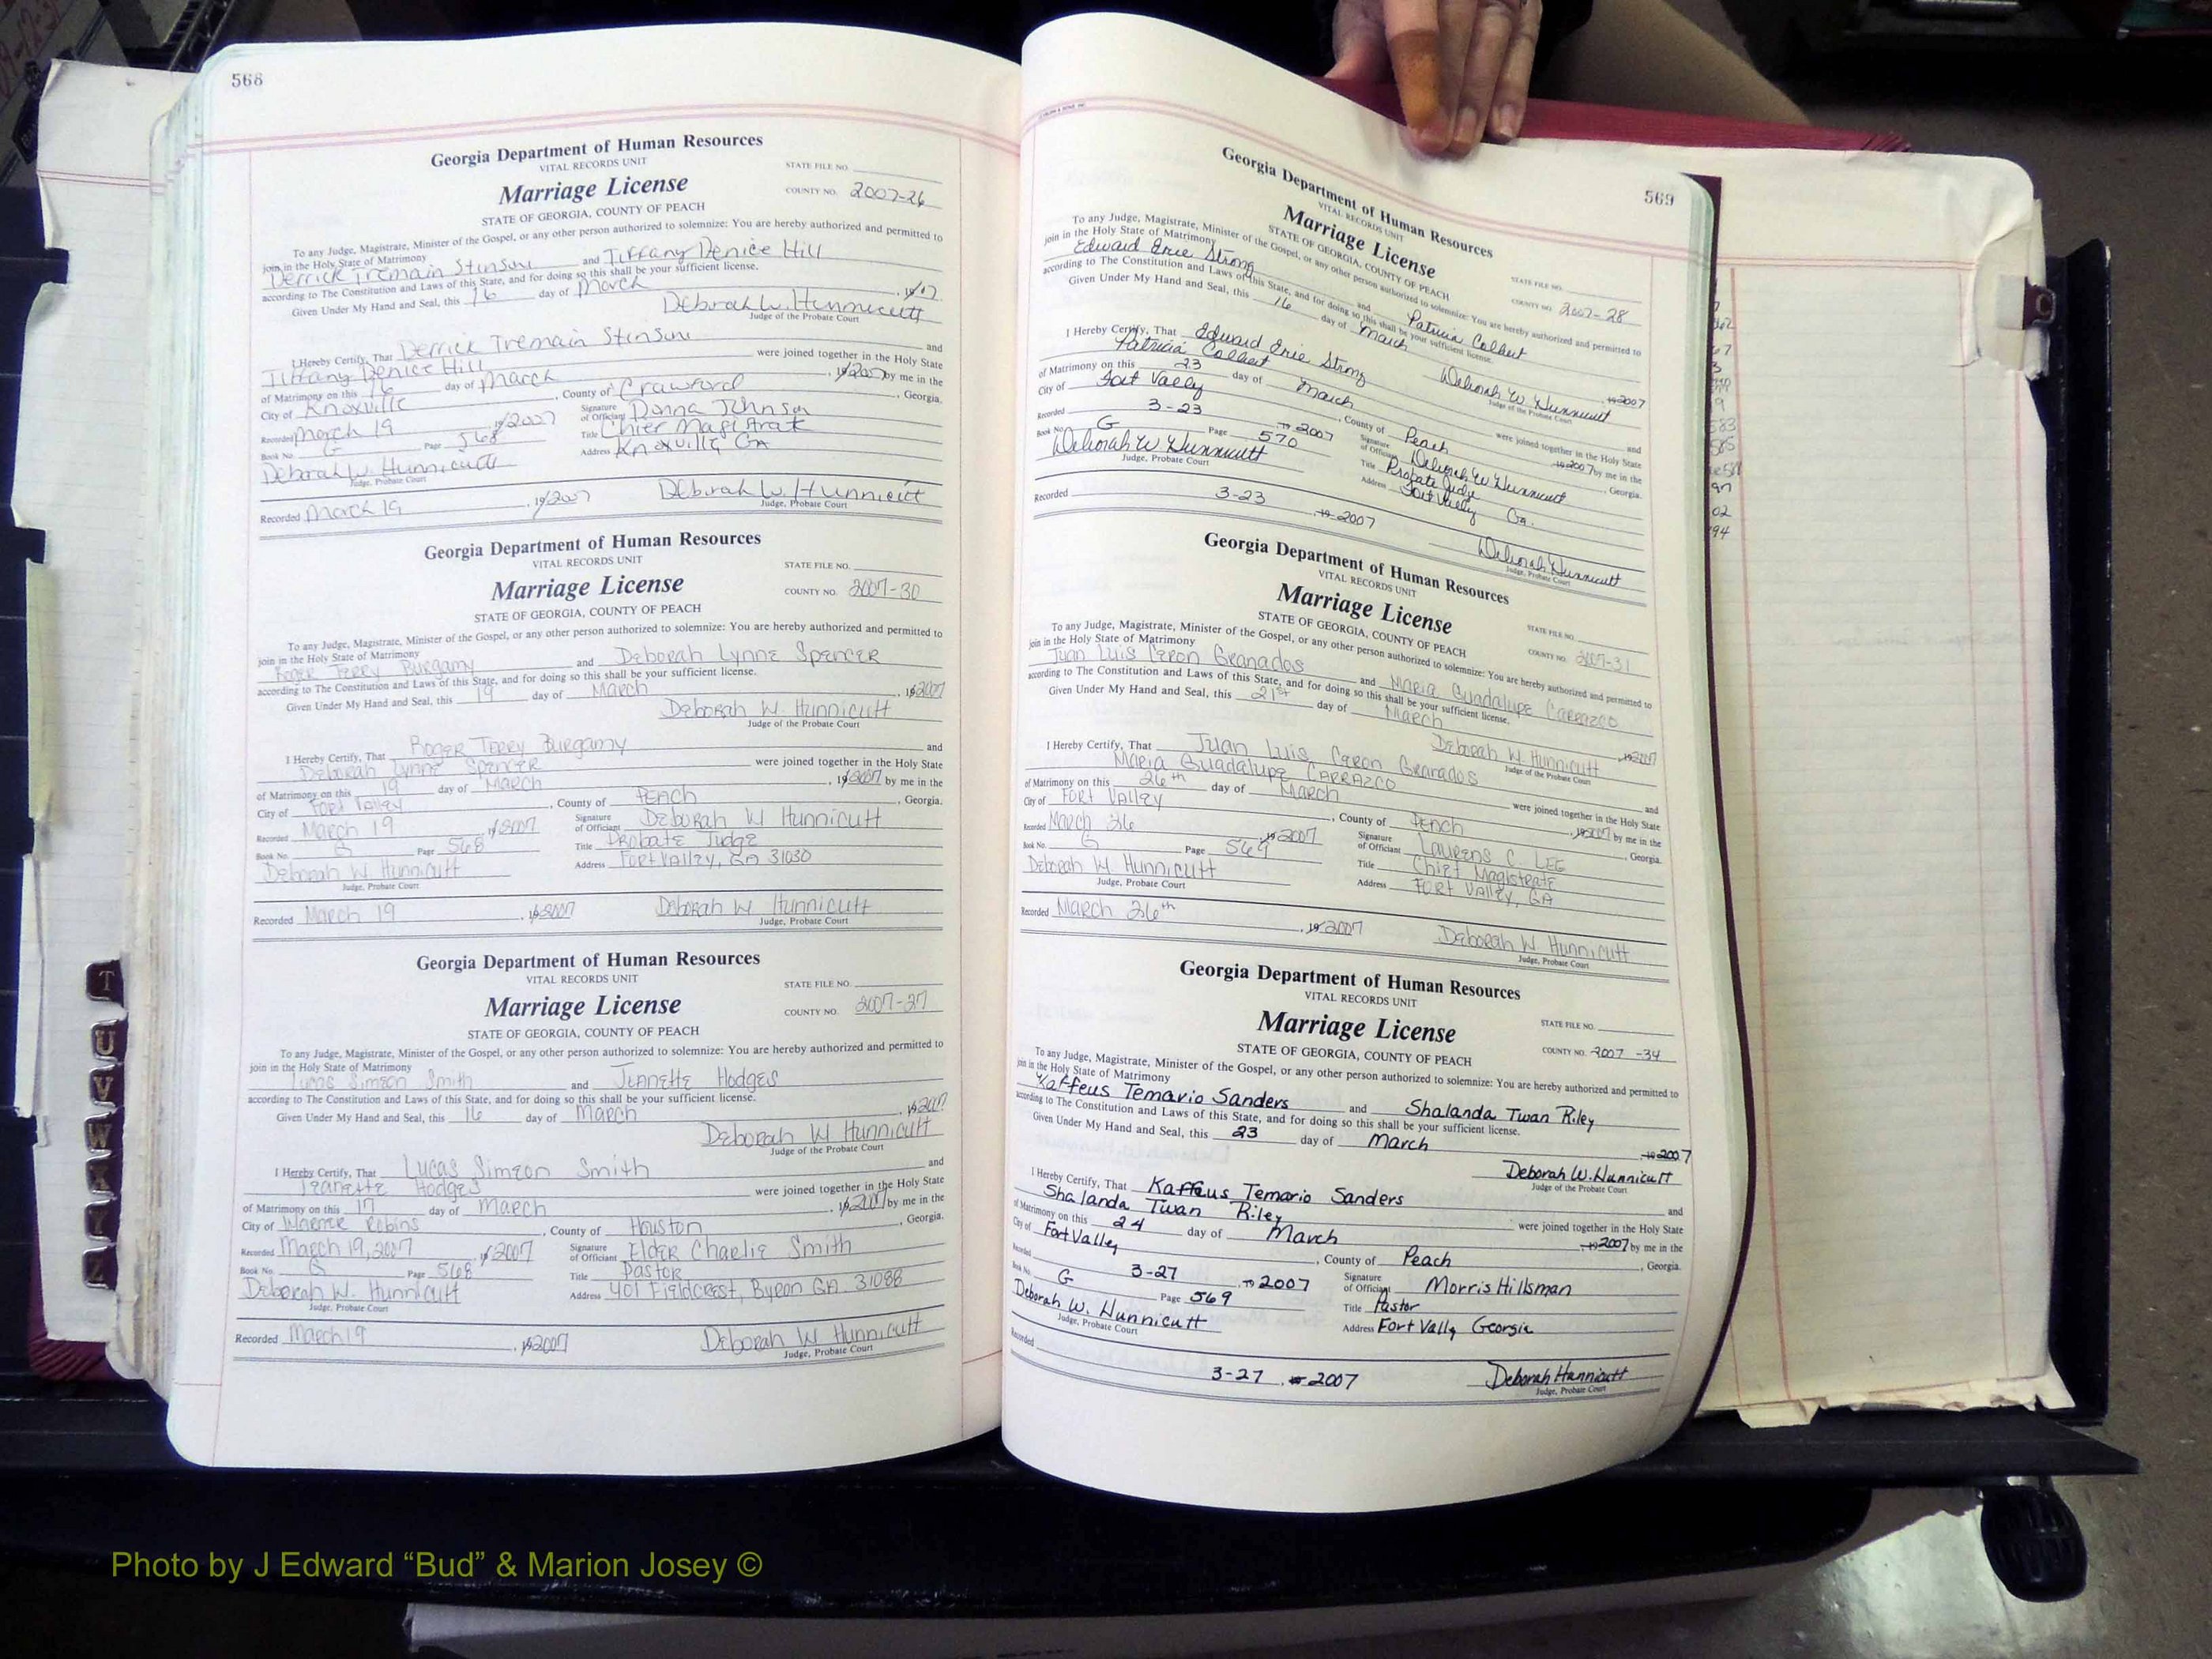 568
Georgia Department of Human Resources
VITAL RECORDS UNIT
STATE FILE NO.
Marriage License
COUNTY NO. 2007-26
STATE OF GEORGIA, COUNTY OF PEACH
To any Judge, Magistrate, Minister of the Gospel, or any other person authorized to solemnize: You are hereby authorized and permitted to
join in the Holy State of Matrimony
Derrick Tremain Stinson and Tiffany Denice Hill
according to The Constitution and Laws of this State, and for doing so this shall be your sufficient license.
Given Under My Hand and Seal, this 16 day of March
Deborah W. Hunnicutt
Judge of the Probate Court
I Hereby Certify, That Derrick Tremain Stinson and
Tiffany Denice Hill were joined together in the Holy State
of Matrimony on this 16 day of March, 2007 by me in the
City of Knoxville, County of Crawford, Georgia.
Recorded March 19 2007 Signature of Official Donna Johnson
Book No. G Page 568 Title Chief Magistrat
Deborah W. Hunnicutt Address Knoxville, GA
Judge, Probate Court
Recorded March 19, 2007 Deborah W. Hunnicutt
Judge, Probate Court
Georgia Department of Human Resources
VITAL RECORDS UNIT
STATE FILE NO.
Marriage License
COUNTY NO. 2007-30
STATE OF GEORGIA, COUNTY OF PEACH
To any Judge, Magistrate, Minister of the Gospel, or any other person authorized to solemnize: You are hereby authorized and permitted to
join in the Holy State of Matrimony
Roger Terry Burgamy and Deborah Lynne Spencer
according to The Constitution and Laws of this State, and for doing so this shall be your sufficient license.
Given Under My Hand and Seal, this 19 day of March, 2007
Deborah W. Hunnicutt
Judge of the Probate Court
I Hereby Certify, That Roger Terry Burgamy and
Deborah Lynne Spencer were joined together in the Holy State
of Matrimony on this 19 day of March, 2007 by me in the
City of Fort Valley, County of Peach, Georgia.
Recorded March 19 2007 Signature of Official Deborah W Hunnicutt
Book No. G Page 568 Title Probate Judge
Deborah W Hunnicutt Address Fort Valley, GA 31030
Judge, Probate Court
Recorded March 19, 2007 Deborah W Hunnicutt
Judge, Probate Court
Georgia Department of Human Resources
VITAL RECORDS UNIT
STATE FILE NO.
Marriage License
COUNTY NO. 2007-27
STATE OF GEORGIA, COUNTY OF PEACH
To any Judge, Magistrate, Minister of the Gospel, or any other person authorized to solemnize: You are hereby authorized and permitted to
join in the Holy State of Matrimony
Lucas Simeon Smith and Jeanette Hodges
according to The Constitution and Laws of this State, and for doing so this shall be your sufficient license.
Given Under My Hand and Seal, this 16 day of March, 2007
Deborah W Hunnicutt
Judge of the Probate Court
I Hereby Certify, That Lucas Simeon Smith and
Jeanette Hodges were joined together in the Holy State
of Matrimony on this 17 day of March, 2007 by me in the
City of Warner Robins, County of Houston, Georgia.
Recorded March 19, 2007 2007 Signature of Official Elder Charlie Smith
Book No. G Page 568 Title Pastor
Deborah W. Hunnicutt Address 401 Fieldcrest, Byron GA. 31088
Judge, Probate Court
Recorded March 19, 2007 Deborah W Hunnicutt
Judge, Probate Court
569
Georgia Department of Human Resources
VITAL RECORDS UNIT
STATE FILE NO.
Marriage License
COUNTY NO. 2007-28
STATE OF GEORGIA, COUNTY OF PEACH
To any Judge, Magistrate, Minister of the Gospel, or any other person authorized to solemnize: You are hereby authorized and permitted to
join in the Holy State of Matrimony
Edward Eric Strong and Patricia Colbert
according to The Constitution and Laws of this State, and for doing so this shall be your sufficient license.
Given Under My Hand and Seal, this 16 day of March 2007
Deborah W. Hunnicutt
Judge of the Probate Court
I Hereby Certify, That Edward Eric Strong and
Patricia Colbert were joined together in the Holy State
of Matrimony on this 23 day of March 2007 by me in the
City of Fort Valley, County of Peach, Georgia.
Recorded 3-23 2007 Signature of Official Deborah W Hunnicutt
Book No. G Page 570 Title Probate Judge
Deborah W Hunnicutt Address Fort Valley Ga.
Judge, Probate Court
Recorded 3-23 2007 Deborah Hunnicutt
Judge, Probate Court
Georgia Department of Human Resources
VITAL RECORDS UNIT
STATE FILE NO.
Marriage License
COUNTY NO. 2007-31
STATE OF GEORGIA, COUNTY OF PEACH
To any Judge, Magistrate, Minister of the Gospel, or any other person authorized to solemnize: You are hereby authorized and permitted to
join in the Holy State of Matrimony
Juan Luis Ceron Granados and Maria Guadalupe Carrazco
according to The Constitution and Laws of this State, and for doing so this shall be your sufficient license.
Given Under My Hand and Seal, this 21st day of March, 2007
Deborah W. Hunnicutt
Judge of the Probate Court
I Hereby Certify, That Juan Luis Ceron Granados and
Maria Guadalupe Carrazco were joined together in the Holy State
of Matrimony on this 26th day of March, 2007 by me in the
City of Fort Valley, County of Peach, Georgia.
Recorded March 26, 2007 Signature of Official Laurens C. Lee
Book No. G Page 569 Title Chief Magistrate
Deborah W. Hunnicutt Address Fort Valley, GA
Judge, Probate Court
Recorded March 26th, 2007 Deborah W Hunnicutt
Judge, Probate Court
Georgia Department of Human Resources
VITAL RECORDS UNIT
STATE FILE NO.
Marriage License
COUNTY NO. 2007-34
STATE OF GEORGIA, COUNTY OF PEACH
To any Judge, Magistrate, Minister of the Gospel, or any other person authorized to solemnize: You are hereby authorized and permitted to
join in the Holy State of Matrimony
Kaffeus Temario Sanders and Shalanda Twan Riley
according to The Constitution and Laws of this State, and for doing so this shall be your sufficient license.
Given Under My Hand and Seal, this 23 day of March 2007
Deborah W. Hunnicutt
Judge of the Probate Court
I Hereby Certify, That Kaffeus Temario Sanders and
Shalanda Twan Riley were joined together in the Holy State
of Matrimony on this 24 day of March 2007 by me in the
City of Fort Valley, County of Peach, Georgia.
Recorded 3-27 2007 Signature of Official Morris Hillsman
Book No. G Page 569 Title Pastor
Deborah W. Hunnicutt Address Fort Vally Georgia
Judge, Probate Court
Recorded 3-27, 2007 Deborah Hunnicutt
Judge, Probate Court
T
U
V
W
X
Y
Z
Photo by J Edward “Bud” & Marion Josey ©